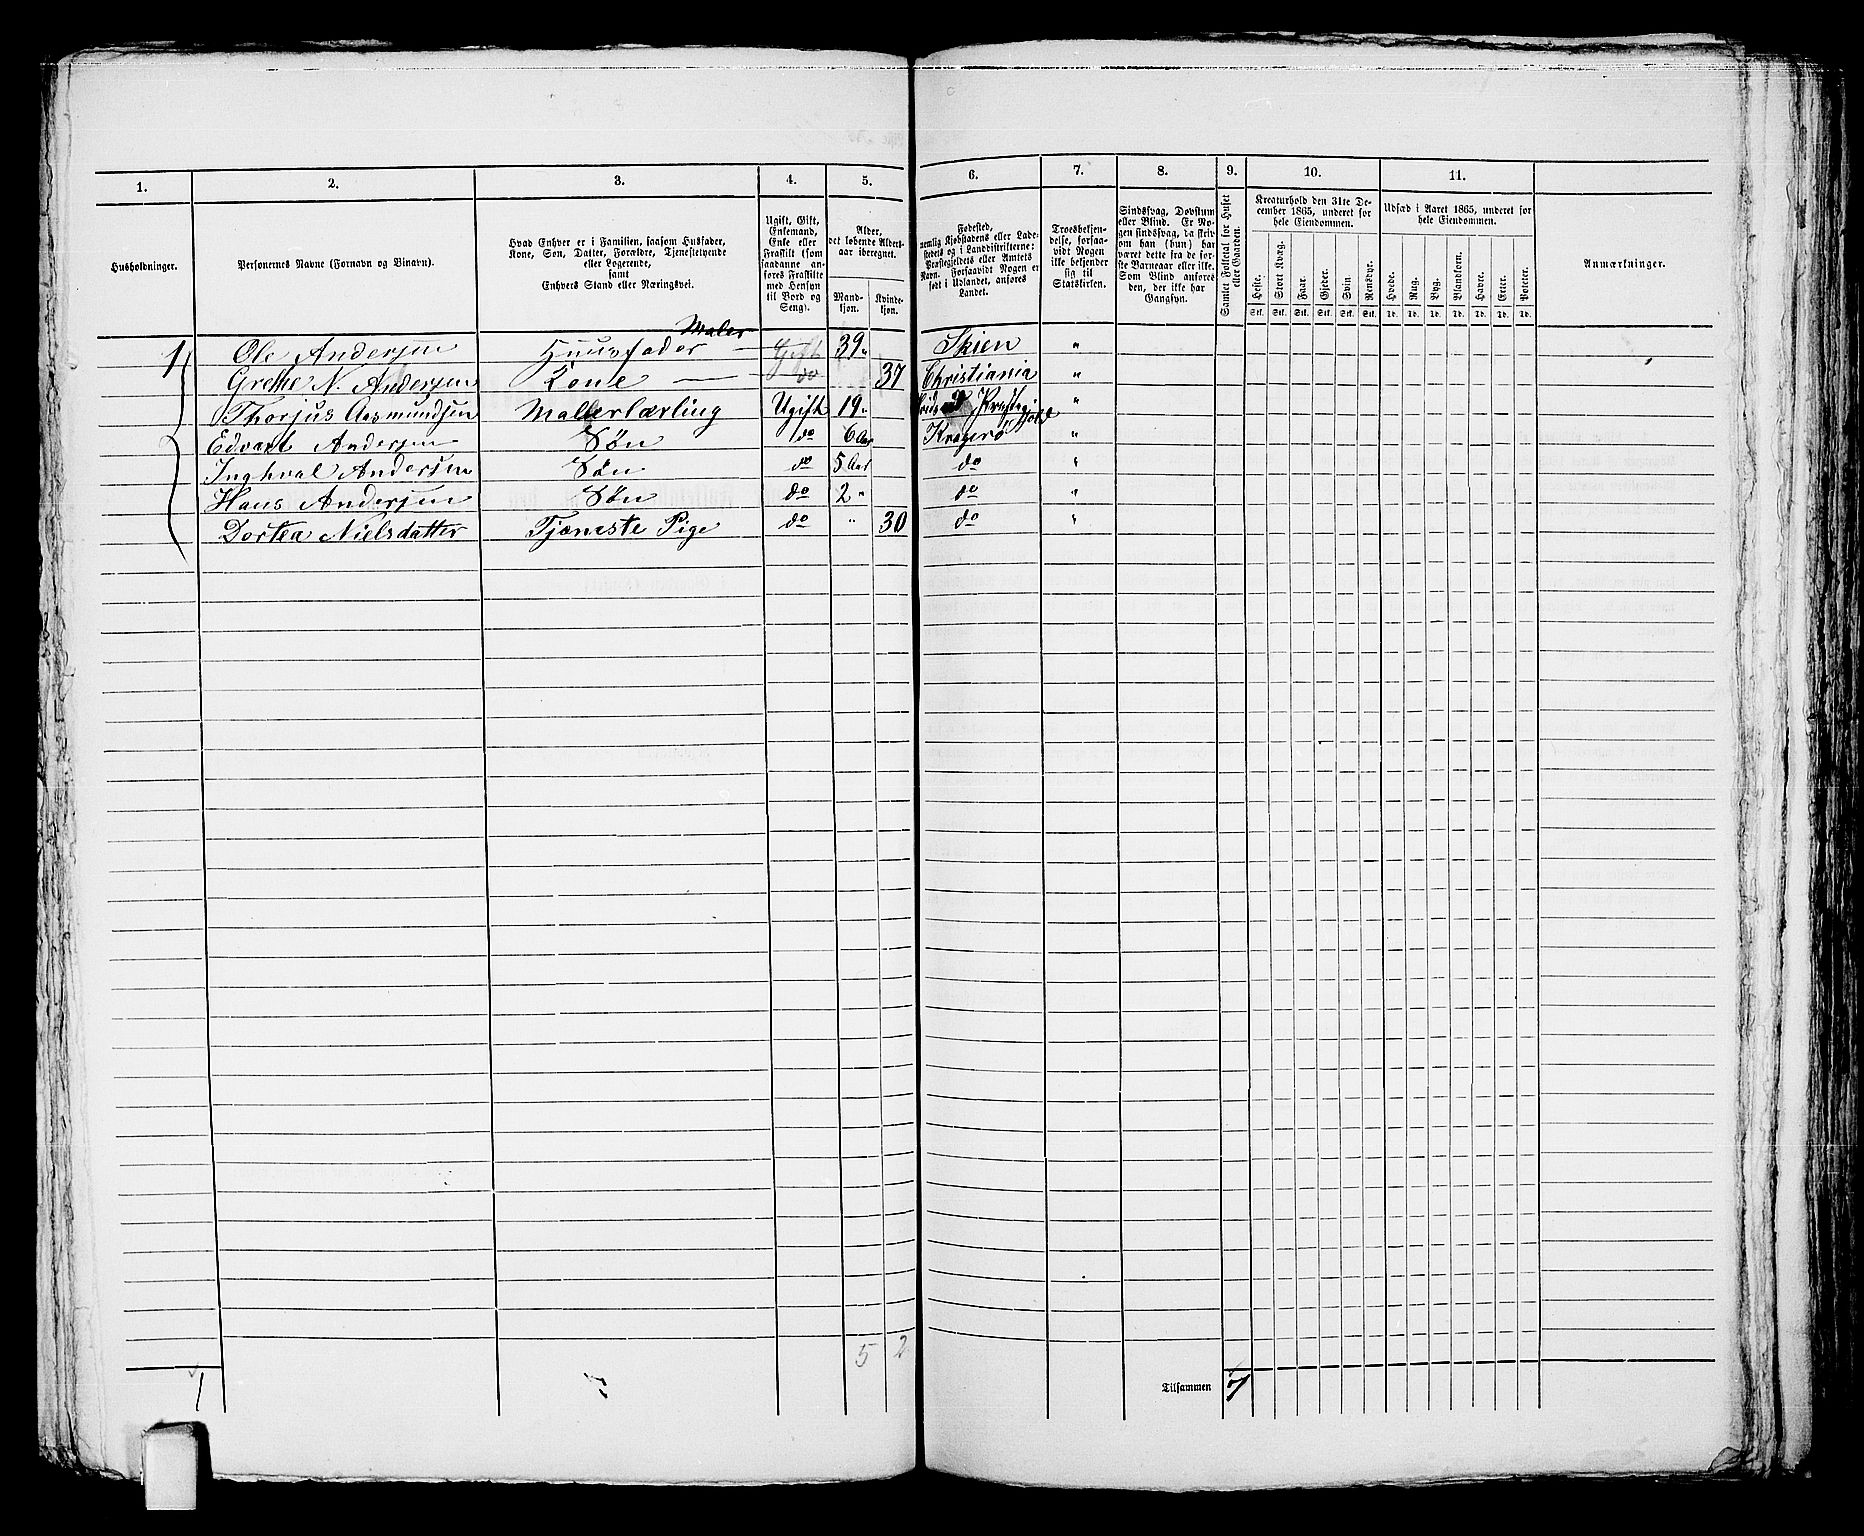 1. 2. 3. 4. 5. 6. 7. 8. 9. 10. 11.
Husholdninger.
Personernes Navne (Fornavn og Binavn).
Hvad Enhver er i Familien, saasom Husfader,
Kone, Søn, Datter, Forældre, Tjenestetyende
eller Logerende,
samt
Enhvers Stand eller Næringsvei.
Ugift, Gift,
Enkemand,
Enke eller
Fraskilt (som
saadanne an-
føres Fraskilte
med Hensyn
til Bord og
Seng).
Alder,
det løbende Alders-
aar iberegnet.
Mand-
kjøn.
Kvinde-
kjøn.
Fødested,
nemlig Kjøbstadens eller Lade-
stedets og i Landdistrikterne:
Præstegjeldets eller Amtets
Navn. Forsaavidt Nogen er
født i Udlandet, anføres
Landet.
Troesbekjen-
delse, forsaa-
vidt Nogen
ikke bekjender
sig til
Statskirken.
Sindssvag, Døvstum
eller Blind. Er No-
gen sindssvag, da skriv
om han (hun) har
været dette fra de før-
ste Barneaar eller ikke.
Som Blind anføres
den, der ikke har
Gangsyn.
Samlet Folketal for Huset
eller Gaarden.
Kreaturhold den 31te De-
cember 1865, underet for
hele Eiendommen.
Heste. Stort Kvæg. Faar. Gjeder. Svin. Rensdyr.
Stk. Stk. Stk. Stk. Stk. Stk.
Udsæd i Aaret 1865, underet for
hele Eiendommen.
Hvede. Rug. Byg. Blandkorn. Havre. Erter. Poteter.
Td. Td. Td. Td. Td. Td. Td.
Anmærkninger.
Maler
1 Ole Andersen Huusfader — Gift 39 " Skien "
Grethe N. Andersen Kone — do 37 Christiania "
Thorjus Aasmundsen Mallerlærling Ugift 19 " "
Edvart Andersen Søn do 6 Aar Kragerø "
Inghval Andersen Søn do 5 Aar do "
Hans Andersen Søn do 2 " do "
Dortea Nielsdatter Tjæneste Pige do " 30 do "
5 2
1 Tilsammen 7